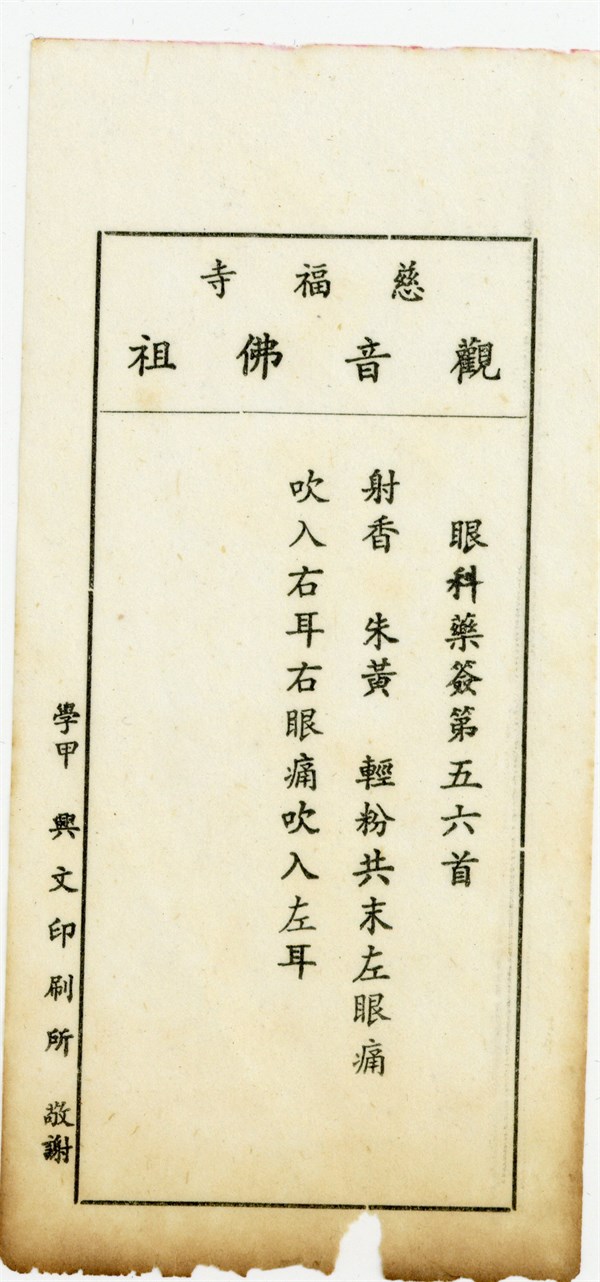 慈福寺
觀音佛祖
眼科藥簽第五六首
射香 朱黃 輕粉共末左眼痛
吹入右耳右眼痛吹入左耳
學甲 興文印刷所 敬謝